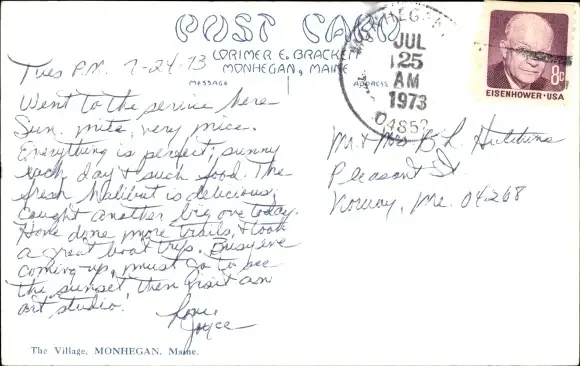 POST CARD
LORIMER E. BRACKETT
MONHEGAN, MAINE
MESSAGE
ADDRESS
MONHEGAN,
JUL
25
AM
1973
04852
8c
EISENHOWER·USA
Tues P.M. 7-24-73
Went to the service here
Sun. nite, very nice.
Everything is perfect; sunny
each day & such food. The
fresh halibut is delicious;
caught another big one today.
Have done more trails, & took
a great boat trip. Busy eve
coming up, must go to see
the sunset, then visit an
art studio.
Love,
Joyce
Mr & Mrs B L Hutchins
Pleasant St.
Norway, Me. 04268
The Village, MONHEGAN, Maine.